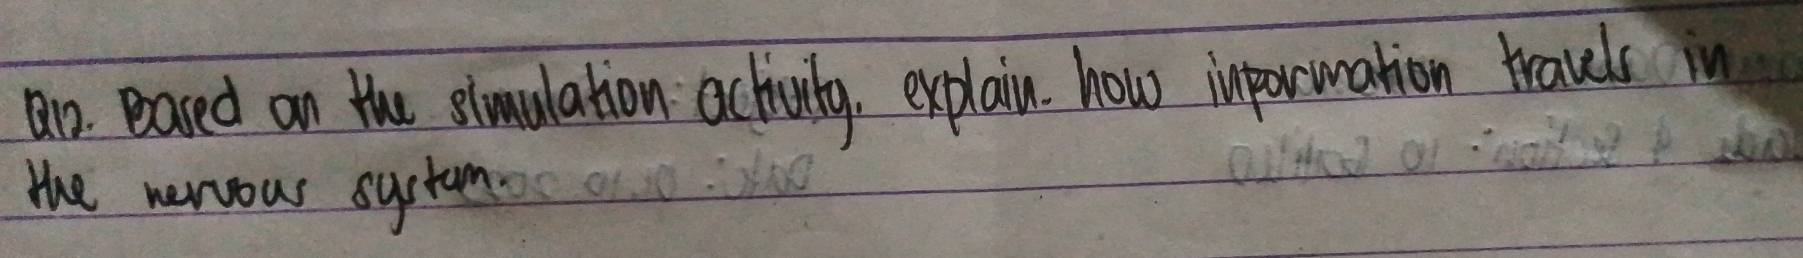 Q12. Based on the simulation activity. explain how information travels in
the nervous system.